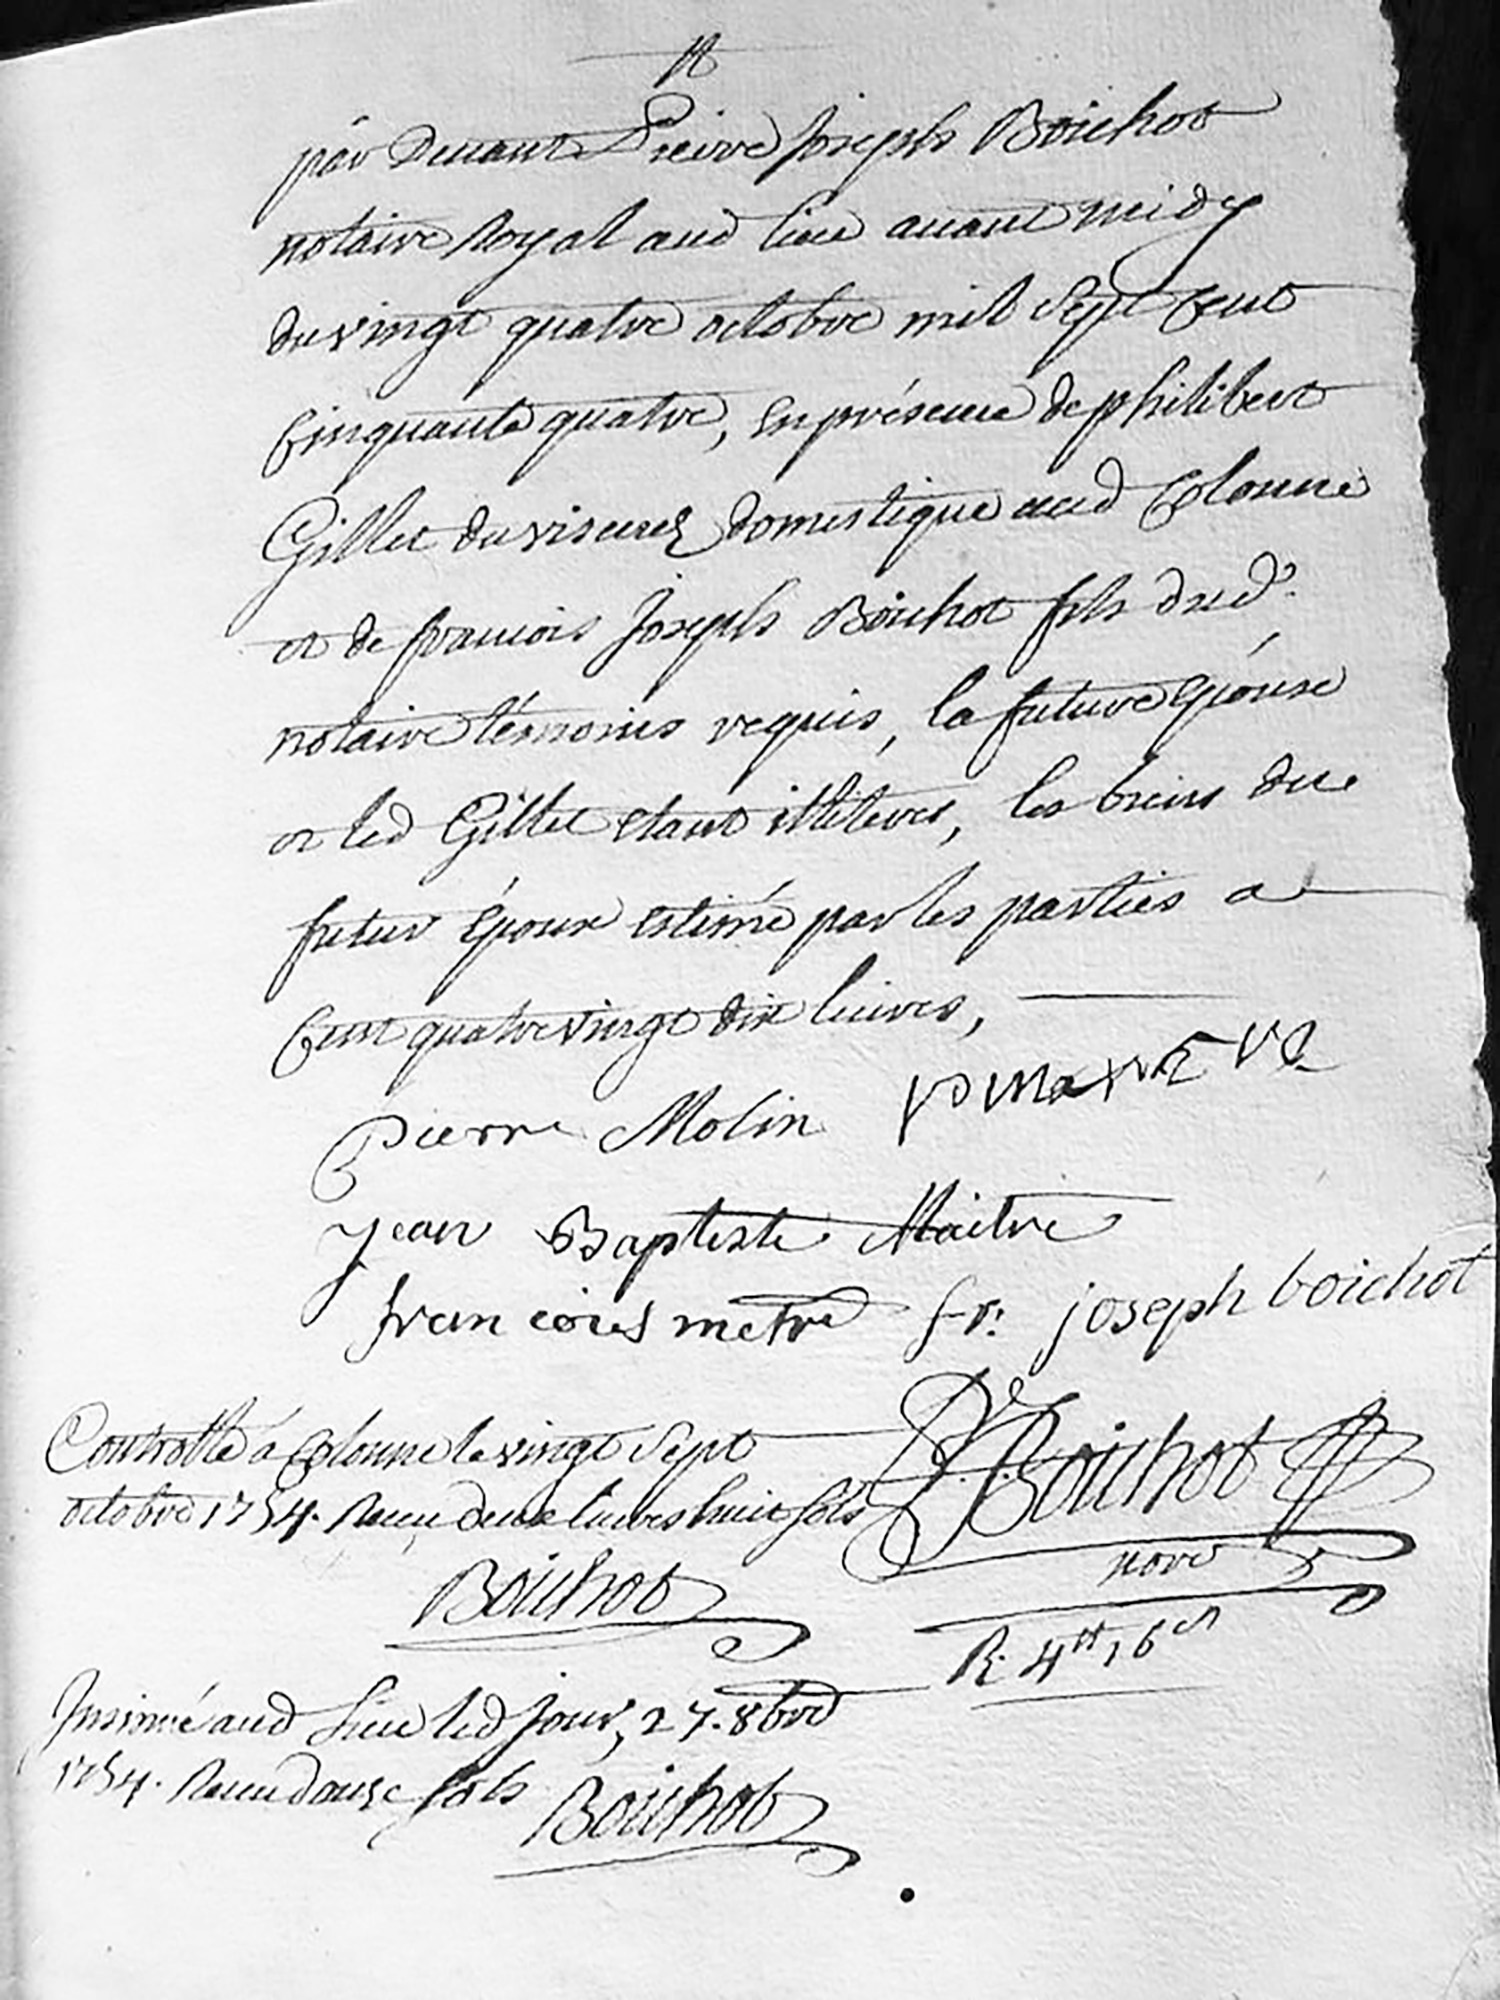 par Devant Pierre Joseph Boichot
notaire Royal aud lieu avant midy
du vingt quatre octobre mil Sept Cent
Cinquante quatre, En présence de philibert
Gillet du viseney domestique aud Colonne
et de francois Joseph Boichot fils dud.
notaire témoins requis, la future Epouse
et led Gillet etant illiteres, les biens du
futur Epoux estimé par les parties a
Cent quatre vingt dix livres,
pierre Molin
jean Baptiste Maitre
francoies metre fr: joseph boichot
Controllé a Colonne le vingt Sept
octobre 1754. Receu deux livres huit sols
Boichot
P. J. Boichot
nore
R. 4tt, 6s
Insinué aud Lieu led Jour, 27. 8bre
1754. Receu douze sols Boichot